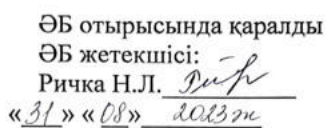 ӘБ отырысында қаралды
ӘБ жетекшісі:
Ричка Н.Л.
«31» «08» 2023 ж